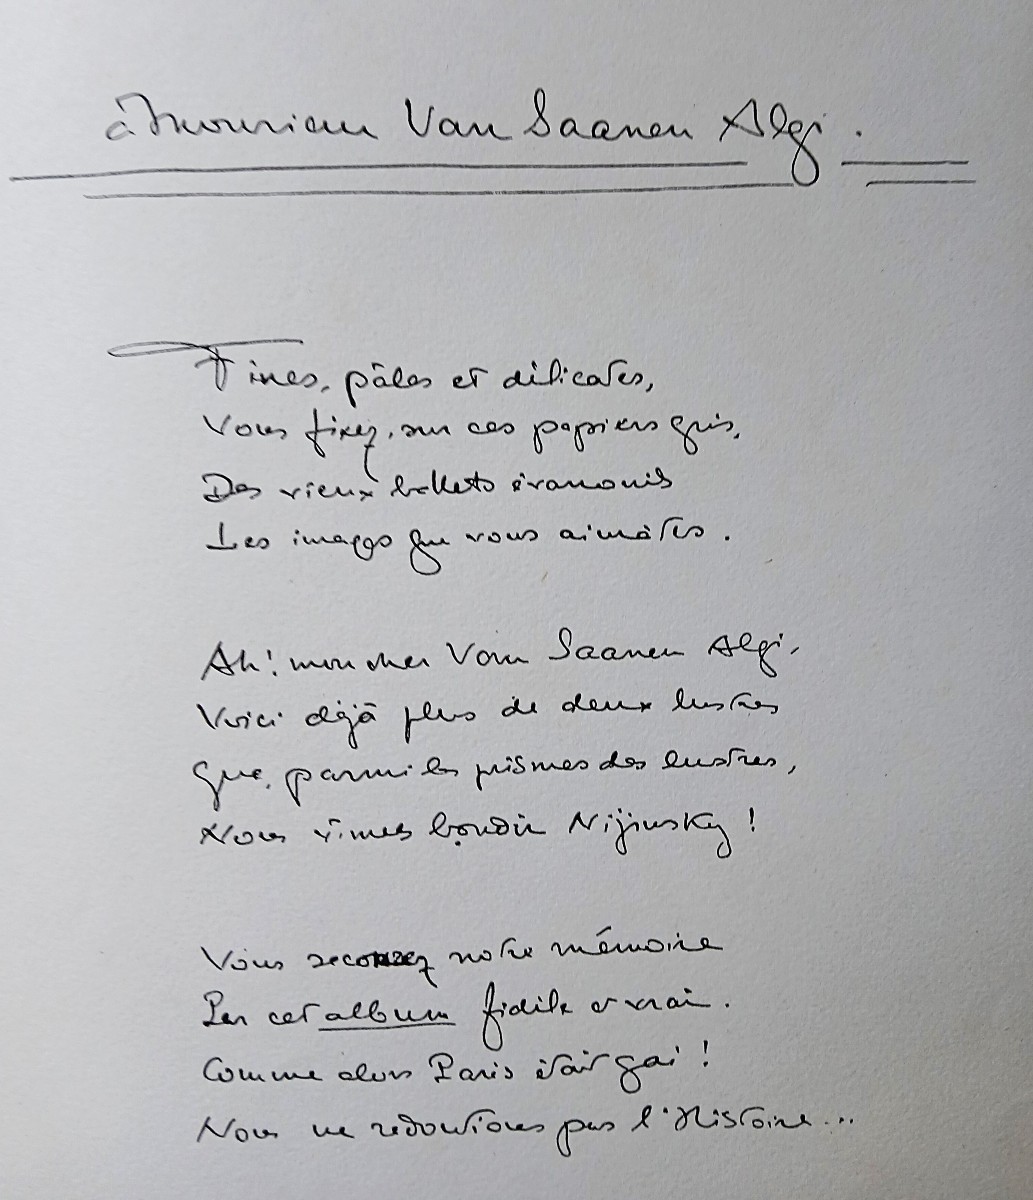 à Monsieur Van Saanen Algi.
Fines, pâles et délicates,
Vous fixez, sur ces papiers gris,
Des vieux ballets évanouis
Les images que vous aimâtes.
Ah! mon cher Van Saanen Algi,
Voici déjà plus de deux lustres
Que, parmi les prismes des lustres,
Nous vîmes bondir Nijinsky!
Vous secouez notre mémoire
Par cet album fidèle et vrai.
Comme alors Paris était gai!
Nous ne redoutions pas l'Histoire...